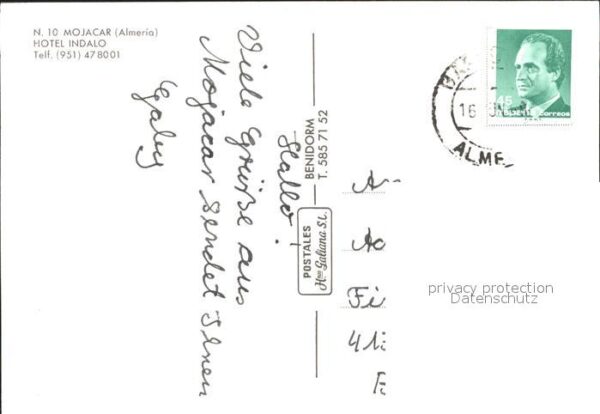 N. 10 MOJACAR (Almería)
HOTEL INDALO
Telf. (951) 478001
Hallo!
Viele Grüße aus
Mojacar sendet Ihnen
Gaby
BENIDORM
T. 585 71 52
POSTALES
Hnos Galiana S.L.
45
correos
16
ALME
A
Ao
Fi
41
privacy protection
Datenschutz